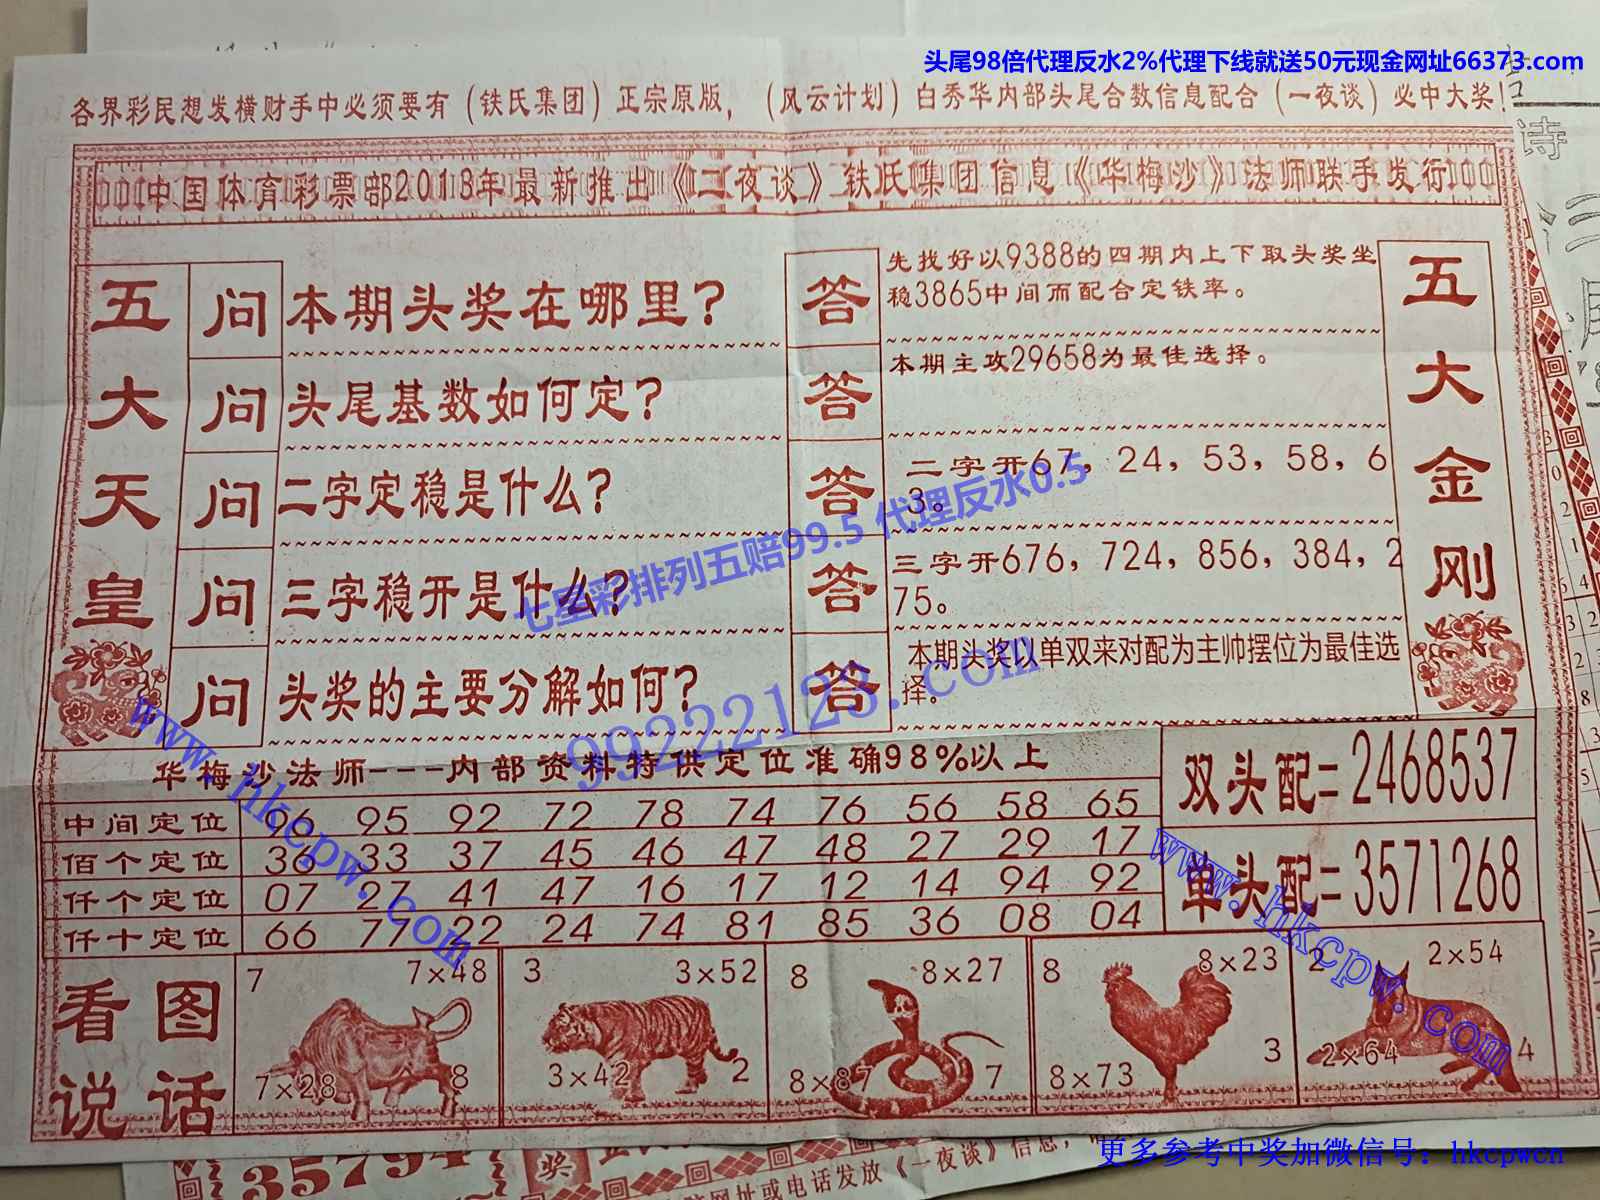 头尾98倍代理反水2%代理下线就送50元现金网址66373.com
各界彩民想发横财手中必须要有(铁氏集团)正宗原版,(风云计划)白秀华内部头尾合数信息配合(一夜谈)必中大奖!
中国体育彩票部2013年最新推出《二夜谈》铁氏集团信息《华梅沙》法师联手发行
五大天皇
问 本期头奖在哪里?
答 先找好以9388的四期内上下取头奖坐
稳3865中间而配合定铁率。
问 头尾基数如何定?
答 本期主攻29658为最佳选择。
问 二字定稳是什么?
答 二字开67，24，53，58，6
3。
问 三字稳开是什么?
答 三字开676，724，856，384，2
75。
问 头奖的主要分解如何?
答 本期头奖以单双来对配为主帅摆位为最佳选
择。
五大金刚
七星彩排列五赔99.5 代理反水0.5
99222123.com
www.hkcpw.com
华梅沙法师---内部资料特供定位准确98%以上
中间定位 96 95 92 72 78 74 76 56 58 65
佰个定位 36 33 37 45 46 47 48 27 29 17
仟个定位 07 27 41 47 16 17 12 14 94 92
仟十定位 66 77 22 24 74 81 85 36 08 04
双头配=2468537
单头配=3571268
www.hkcpw.com
看图说话
7 7×48
7×28 8
3 3×52
3×42 2
8 8×27
8×87 7
8 8×23
8×73 3
2 2×54
2×64 4
更多参考中奖加微信号：hkcpwcn
35794
奖
网址或电话发放《一夜谈》信息，
诗